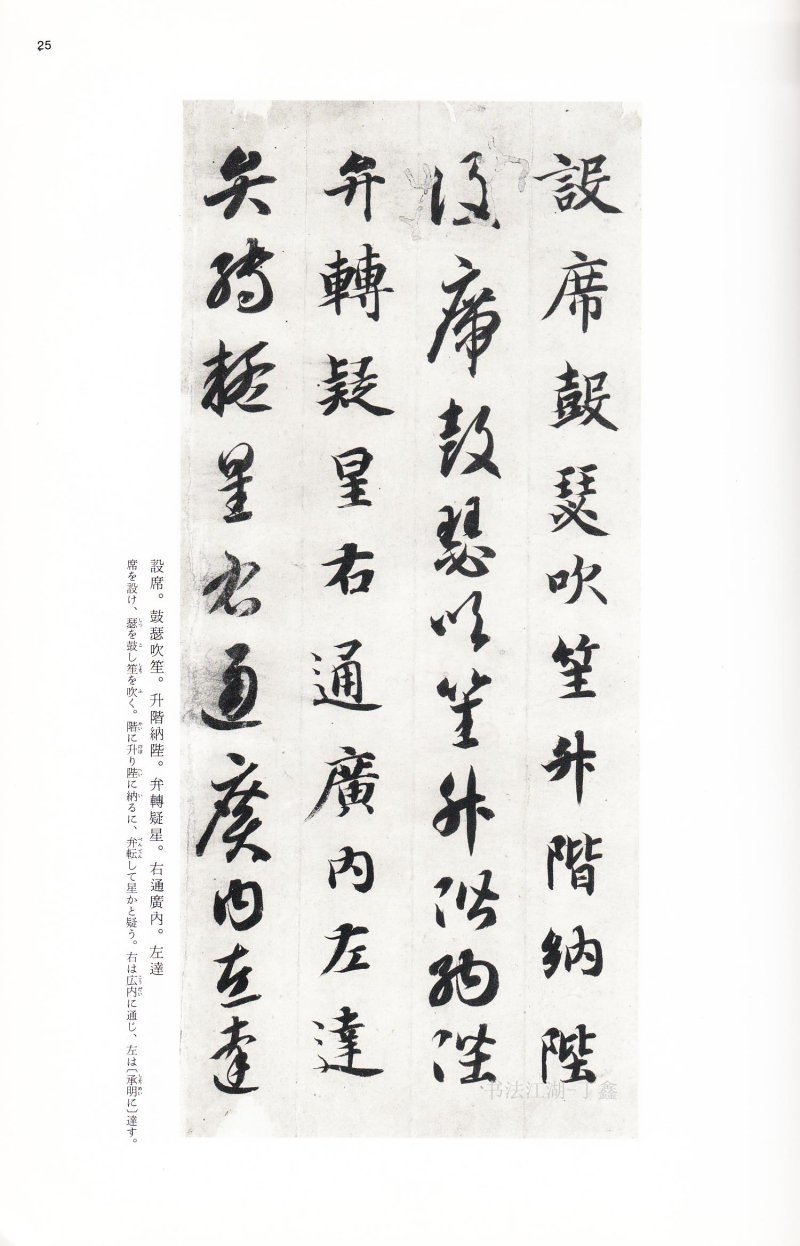 25
設席鼓瑟吹笙升階納陛
設席鼓瑟吹笙升階納陛
弁轉疑星右通廣内左達
弁轉疑星右通廣内左達
設席。鼓瑟吹笙。升階納陛。弁轉疑星。右通廣內。左達
席を設け、瑟を鼓し笙を吹く。階に升り陛に納るに、弁転して星かと疑う。右は広内に通じ、左は〔承明に〕達す。
书法江湖 丁鑫